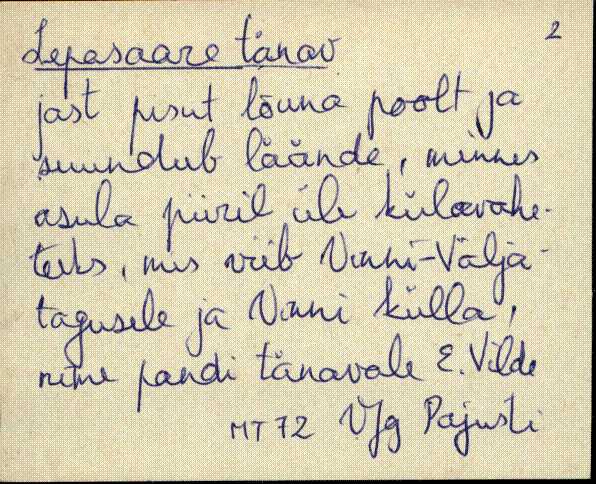 2
Lepasaare tänav
jast pisut lõuna poolt ja
suundub läände, minnes
asula piiril üle külavahe-
teeks, mis viib Vinni-Välja-
tagusele ja Vinni külla,
nime pandi tänavale E. Vilde
MT 72 VJg Pajusti